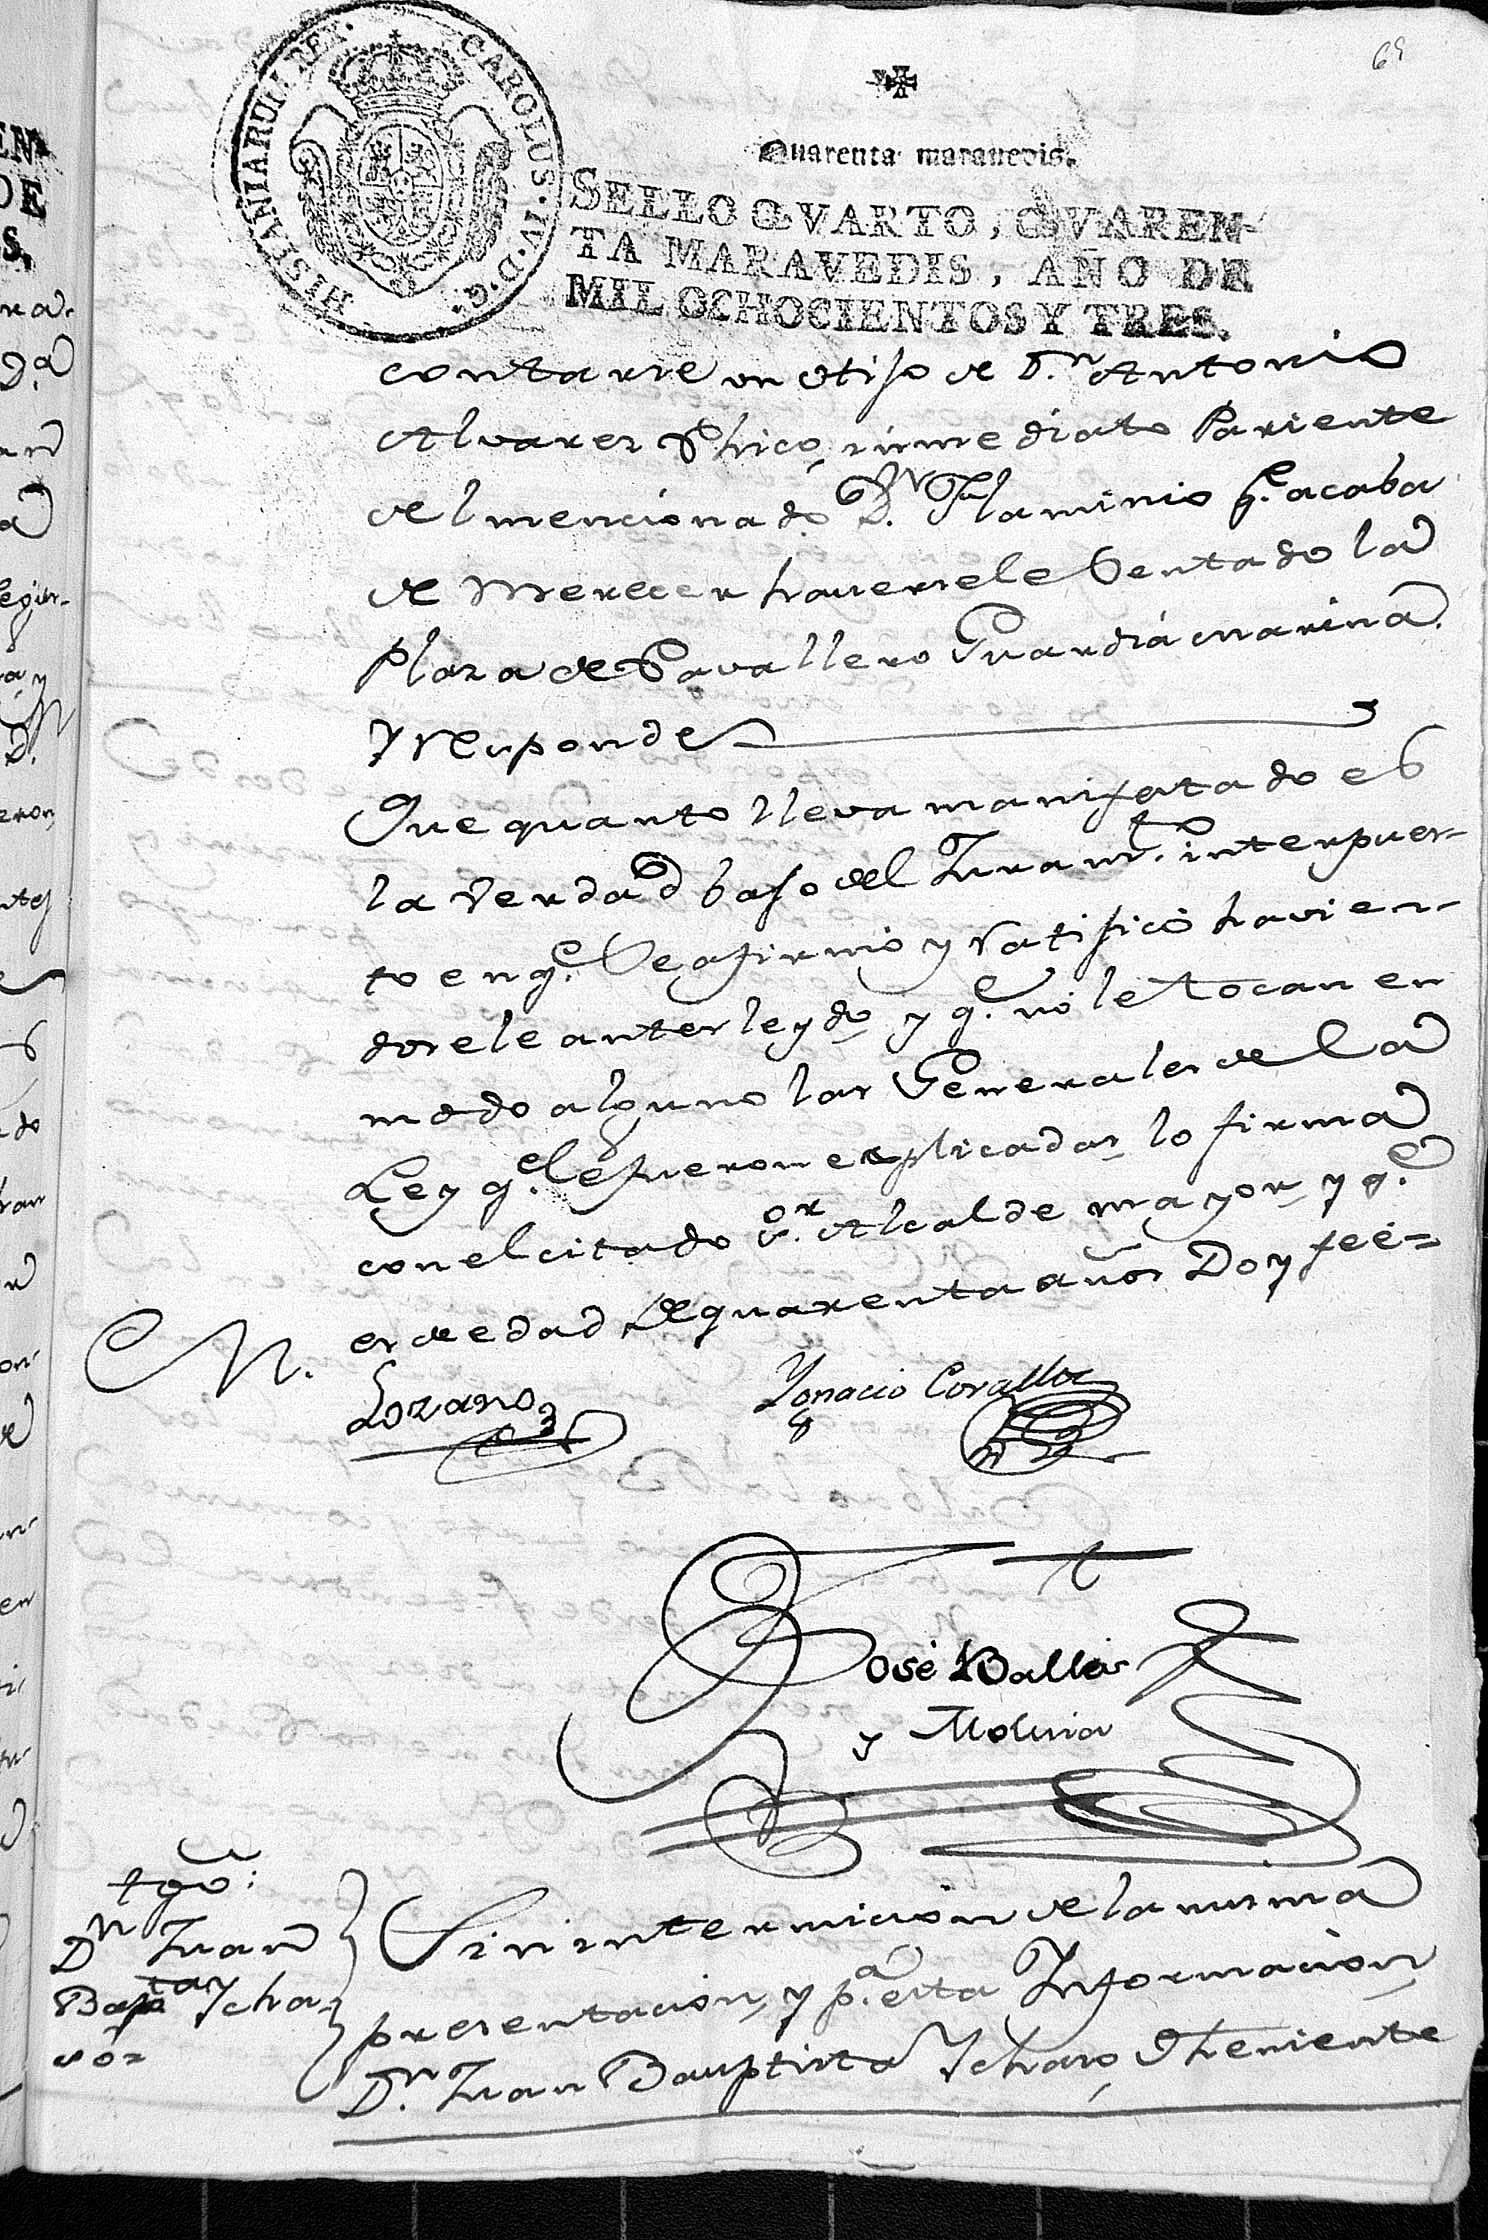 69
HISPANIARUM REX. CAROLUS. IV. D. G.
Quarenta maravedis.
SELLO QVARTO, QVAREN-
TA MARAVEDIS, AÑO DE
MIL OCHOCIENTOS Y TRES.
contarse un de D.n Antonio
Alvarez Chico, inmediato Pariente
del mencionado D.n Flaminio q.e acaba
de merecer haversele Sentado la
Plaza de Cavallero Guardia marina.
Y responde
Que quanto lleva manifestado es
la Verdad bajo del Juram.to interpues-
to en q.e Se afirmó y ratificó havien-
dosele antes leydo, y q.e no le tocan en
modo alguno las Generales de la
Ley q.e le fueron explicadas, lo firma
con el citado S.or Alcalde mayor, y q.e
es de edad de quarenta años Doy fee=
M.
Lozano
Ygnacio
José
y Molina
tgo:
D.n Juan
Bap.ta Ycha
so=
Sin intermicion de la misma
presentacion, y p.a esta Informacion
D.n Juan Bauptista Ychaso, Theniente